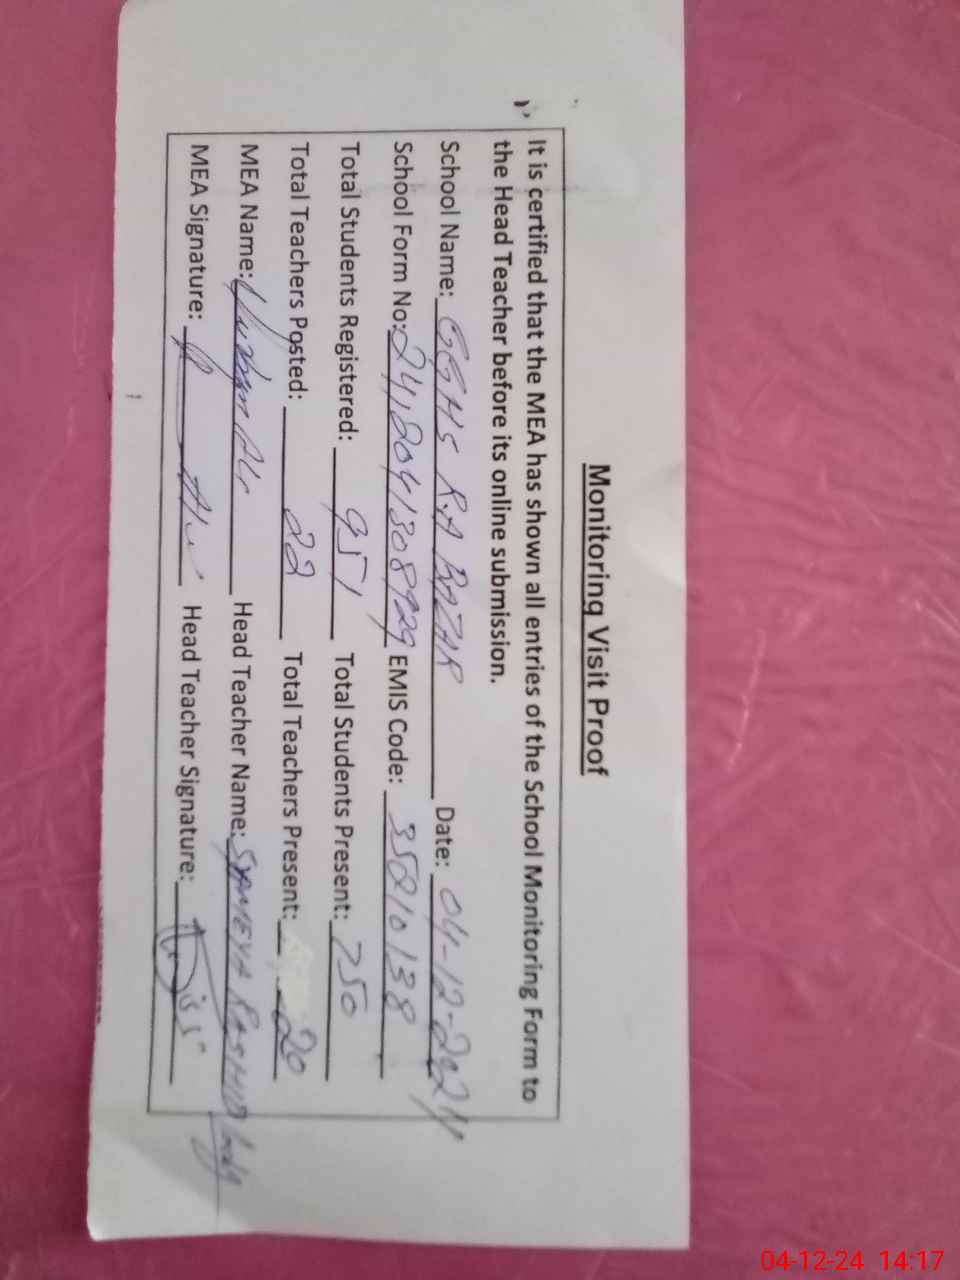 Monitoring Visit Proof
It is certified that the MEA has shown all entries of the School Monitoring Form to
the Head Teacher before its online submission.
School Name: GGHS R.A BAZAR Date: 04-12-2024
School Form No: 2412041308929 EMIS Code: 35210138
Total Students Registered: 951 Total Students Present: 750
Total Teachers Posted: 22 Total Teachers Present: 20
MEA Name: Head Teacher Name: RASHID
MEA Signature: Head Teacher Signature:
04-12-24 14:17